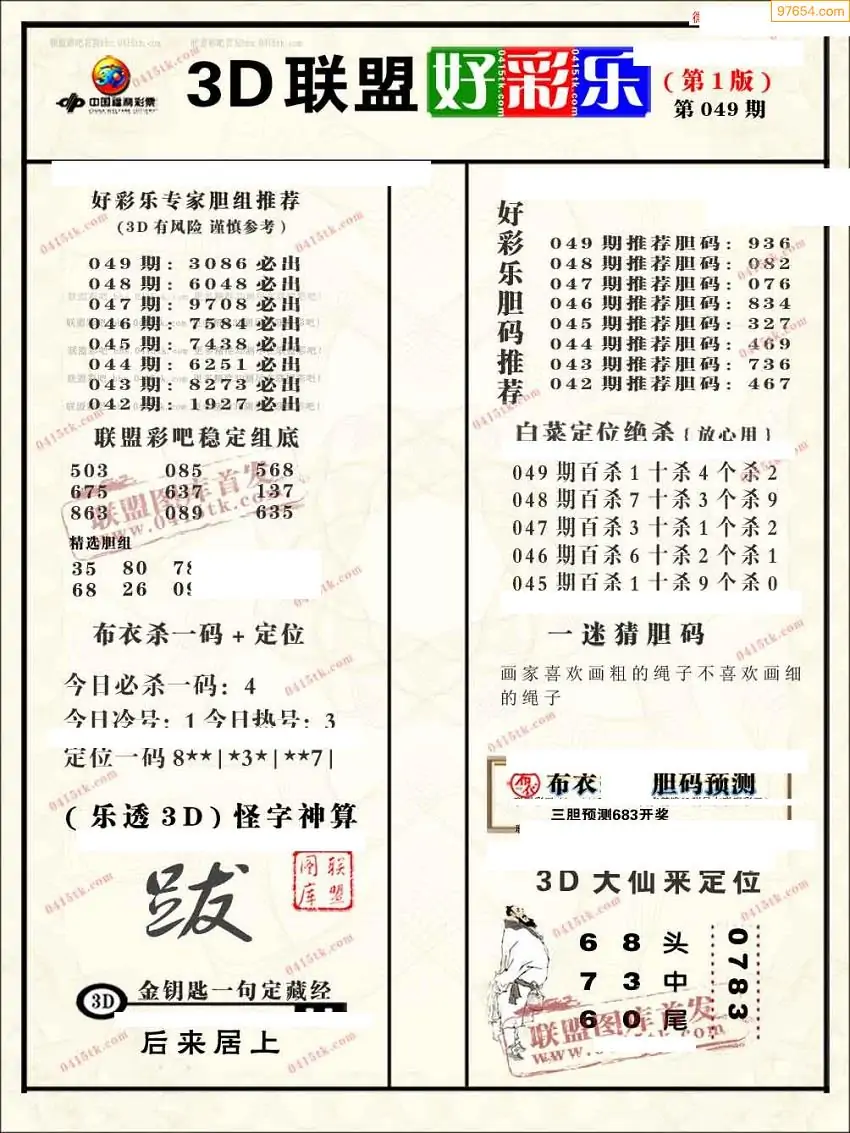 97654.com
中国福利彩票
CHINA WELFARE LOTTERY
3D联盟好彩乐
0415tk.com
(第1版)
第049期
好彩乐专家胆组推荐
(3D有风险 谨慎参考)
049期: 3086必出
048期: 6048必出
047期: 9708必出
046期: 7584必出
045期: 7438必出
044期: 6251必出
043期: 8273必出
042期: 1927必出
联盟彩吧稳定组底
503 085 568
675 637 137
863 089 635
精选胆组
35 80
68 26
布衣杀一码+定位
今日必杀一码: 4
今日冷号: 1 今日热号: 3
定位一码 8**|*3*|**7|
(乐透3D) 怪字神算
跋
联盟图库
3D 金钥匙一句定藏经
后来居上
好彩乐胆码推荐
049期推荐胆码: 936
048期推荐胆码: 082
047期推荐胆码: 076
046期推荐胆码: 834
045期推荐胆码: 327
044期推荐胆码: 469
043期推荐胆码: 736
042期推荐胆码: 467
白菜定位绝杀{放心用}
049期百杀1十杀4个杀2
048期百杀7十杀3个杀9
047期百杀3十杀1个杀2
046期百杀6十杀2个杀1
045期百杀1十杀9个杀0
一迷猜胆码
画家喜欢画粗的绳子不喜欢画细
的绳子
布衣 布衣 胆码预测
三胆预测683开奖
3D大仙来定位
6 8 头
7 3 中
6 0 尾
0783
联盟图库首发
www.0415tk.com